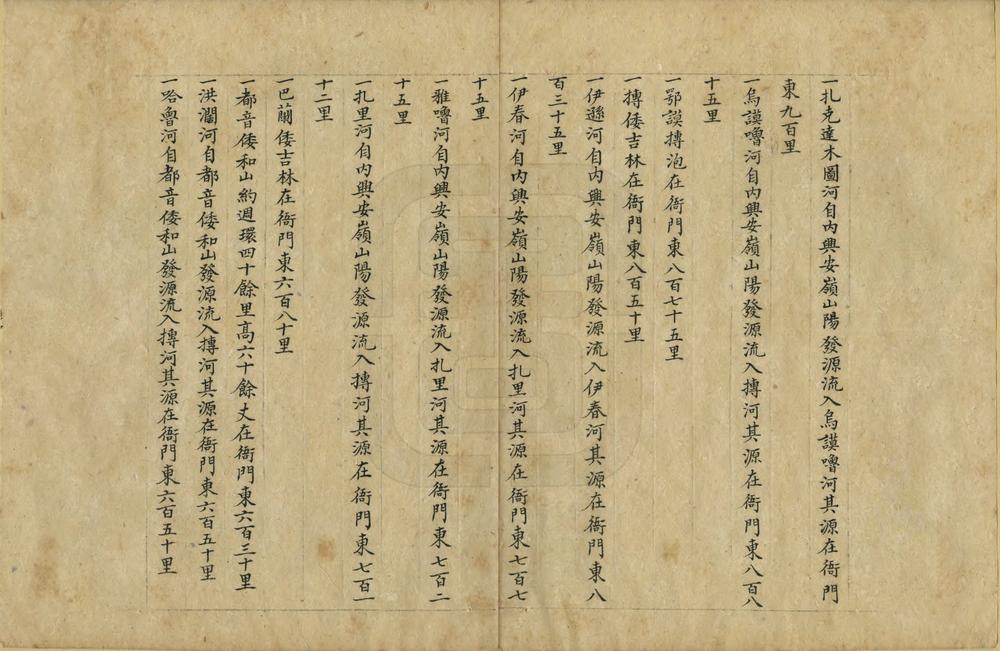 一扎克達木圖河自內興安嶺山陽發源流入烏謨嚕河其源在衙門
東九百里
一烏謨嚕河自內興安嶺山陽發源流入摶河其源在衙門東八百八
十五里
一鄂謨摶泡在衙門東八百七十五里
一摶倭吉林在衙門東八百五十里
一伊遜河自內興安嶺山陽發源流入伊春河其源在衙門東八
百三十五里
一伊春河自內興安嶺山陽發源流入扎里河其源在衙門東七百七
十五里
一雅嚕河自內興安嶺山陽發源流入扎里河其源在衙門東七百二
十五里
一扎里河自內興安嶺山陽發源流入摶河其源在衙門東七百一
十二里
一巴蘭倭吉林在衙門東六百八十里
一都音倭和山約週環四十餘里高六十餘丈在衙門東六百三十里
一洪濶河自都音倭和山發源流入摶河其源在衙門東六百五十里
一哈魯河自都音倭和山發源流入摶河其源在衙門東六百五十里